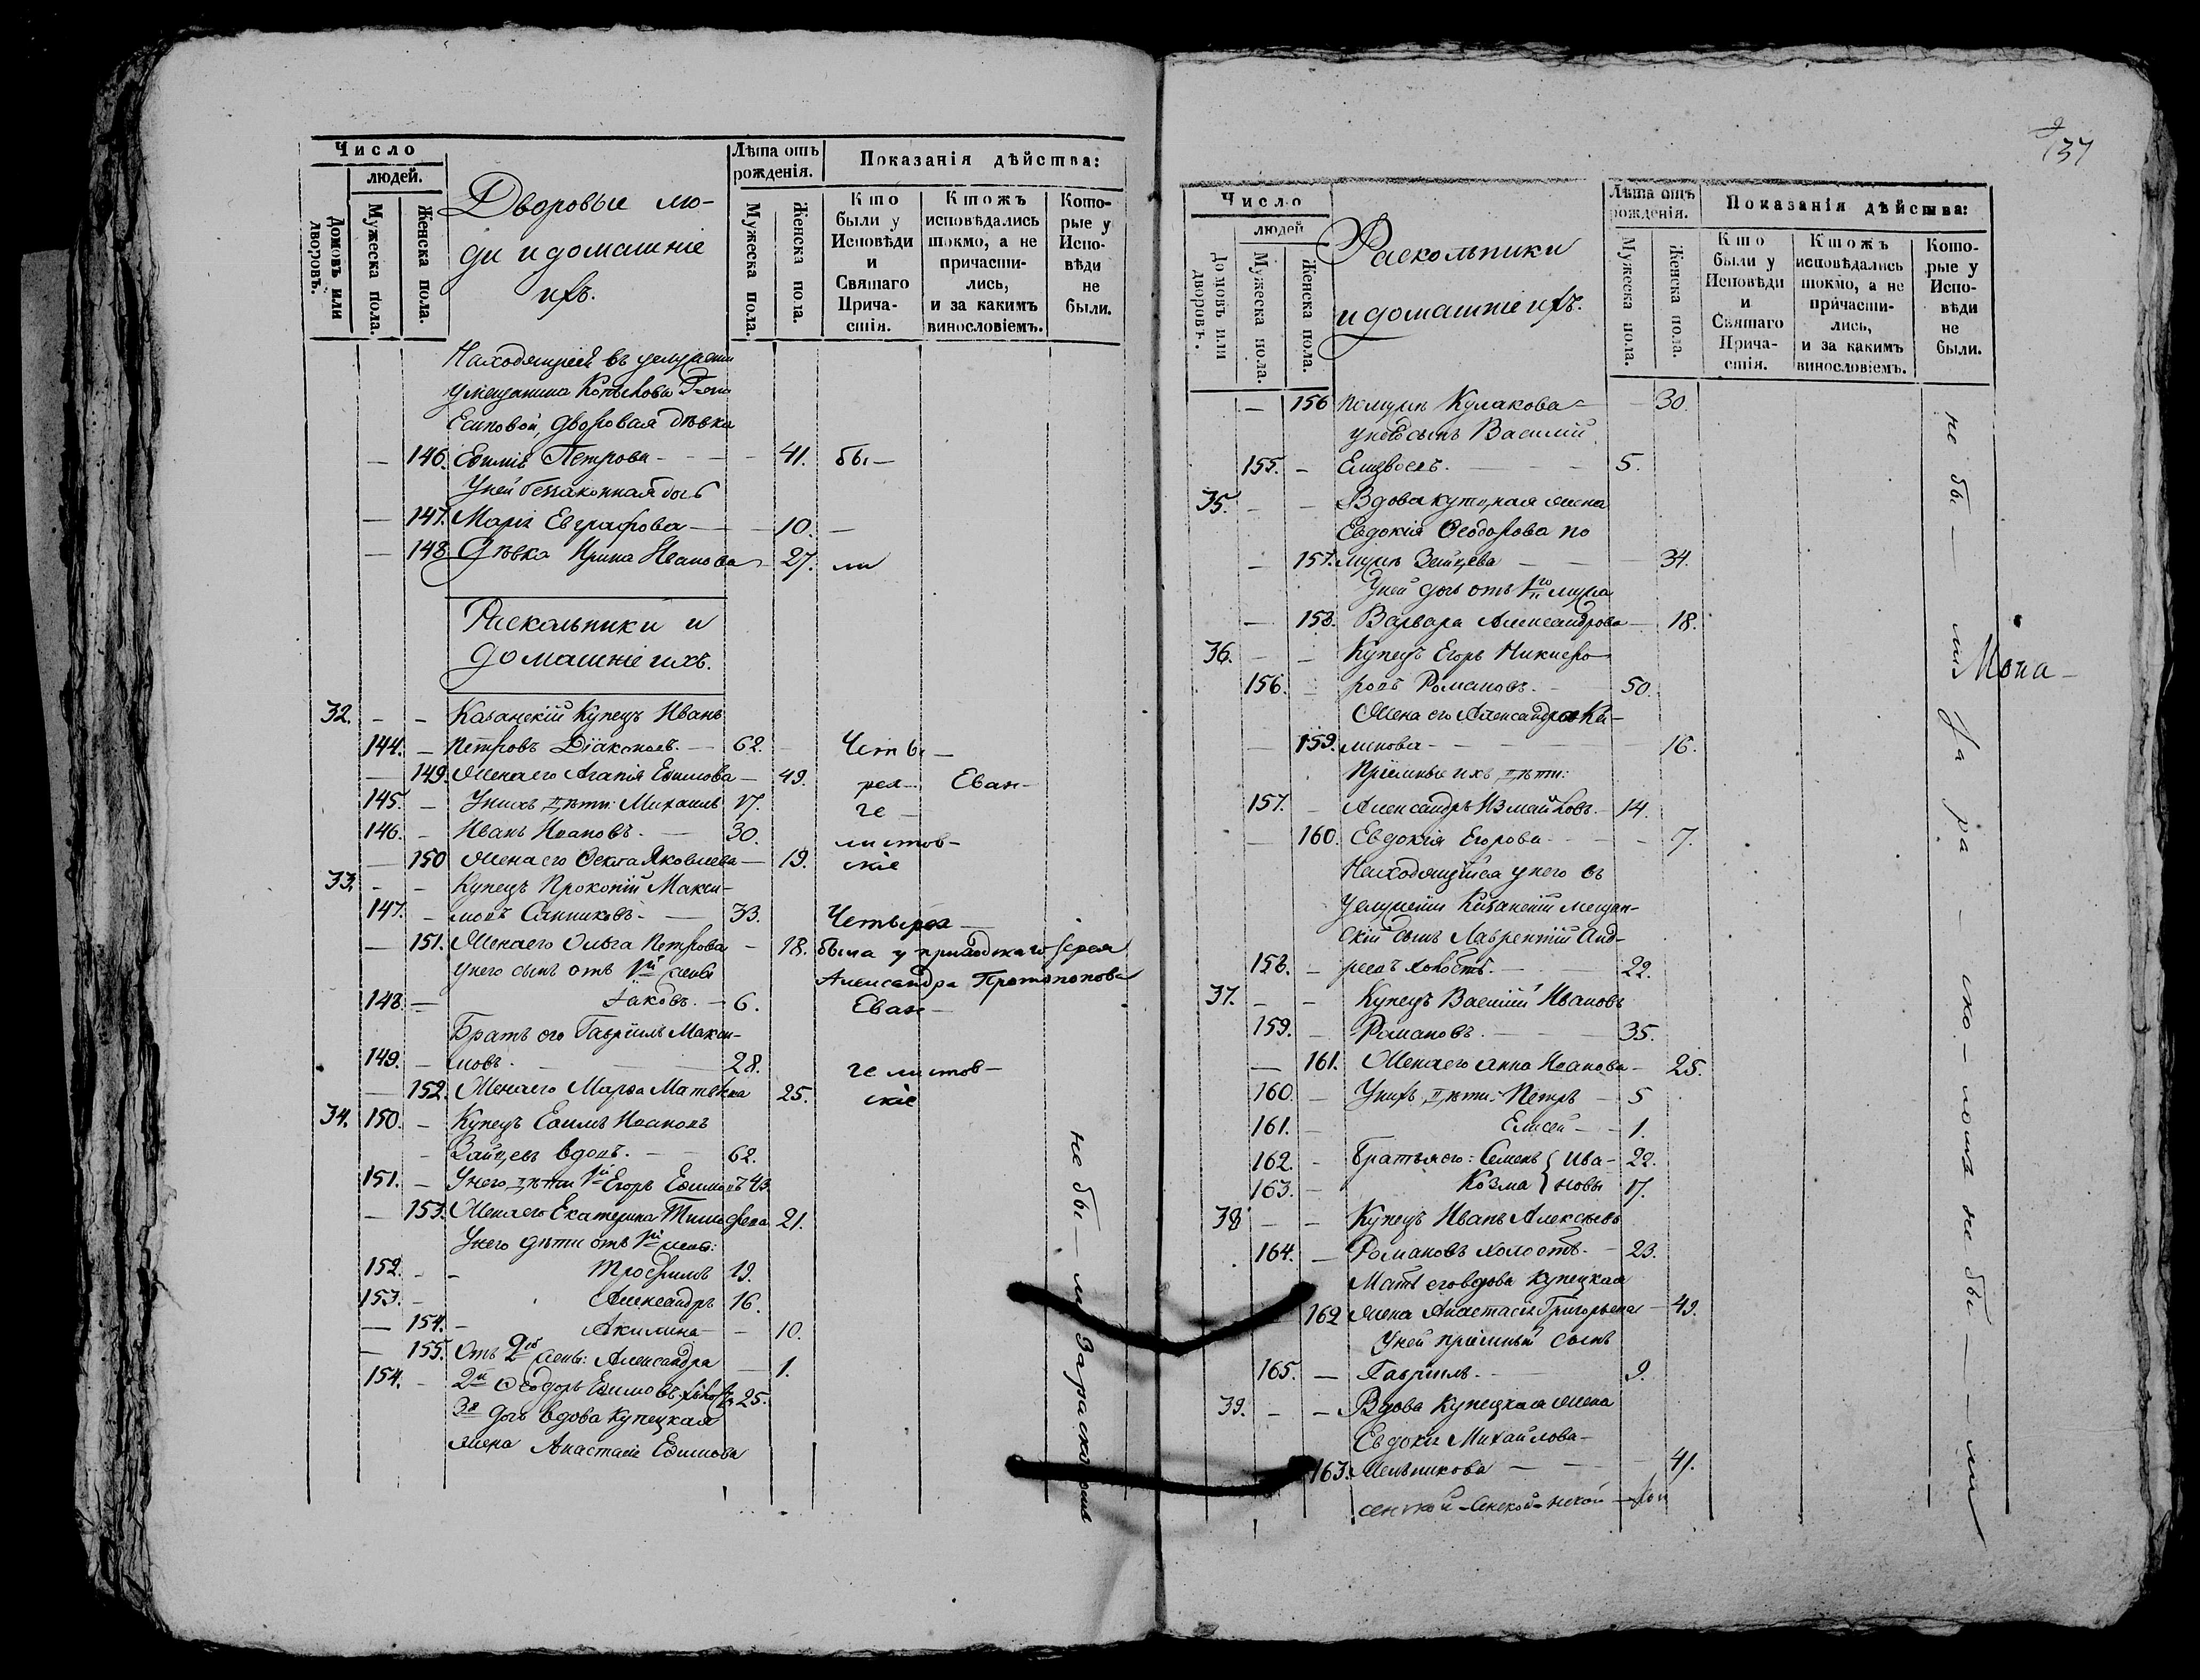 Число
людей.
Домовъ или дворовъ.
Мужеска пола.
Женска пола.
Дворовые лю-
ди и домашніе
ихъ.
Лѣта отъ рожденія.
Мужеска пола.
Женска пола.
Показанія дѣйства:
Кто были у Исповѣди и Святаго Причастія.
Ктожъ исповѣдались токмо, а не причастились, и за какимъ винословіемъ.
Которые у Исповѣди не были.
Находящіеся въ услуженіи
у мещанина
Есиповой, дворовая дѣвка
— 146. Ефимія Петрова — 41. бы —
У ней беззаконная дочь
— 147. Марія Евграфова — 10. —
— 148. Дѣвка Ирина Иванова 27. ли
Раскольники и
домашніе ихъ.
32. – – Казанскій Купецъ Иванъ
144. – Петровъ Діаконовъ. — 62. Четы —
— 149. Жена его Агапія Ефимова — 49. рех — Еван —
145. – У нихъ дѣти: Михаилъ 17. ге —
146. – Иванъ Ивановъ. — 30. листов —
— 150 Жена его Ѳекла Яковлева — 19. скіе
33. – – Купецъ Прокопій Макси-
147. – мовъ Санниковъ. — 33. Четырех —
— 151. Жена его Ольга Петрова — 18. была у приходскаго Іерея
У него сынъ отъ 1й жены Александра Протопопова
148. — Іаковъ. — 6. Еван —
Братъ его Гавріилъ Макси-
149. – мовъ. — 28. гелистов —
— 152. Жена его Марѳа Матвѣева 25. скіе
34. 150. – Купецъ Ефимъ Ивановъ
– Зайцевъ вдовъ. — 62.
151. – У него дѣти 1й Егоръ Ефимовъ 43.
— 153. Жена его Екатерина Тимофеева 21.
У него дѣти отъ 1й жены:
152. – – Трофимъ 19.
153. – Александръ 16.
— 154. – Акилина — 10.
— 155. Отъ 2ой жены: Александра — 1.
154. – 2й Ѳеодоръ Ефимовъ холостъ 25.
3я дочь вдова Купецкая
жена Анастасія Ефимова
не бы — ли За раскольн
137
Число
людей
Домовъ или дворовъ.
Мужеска пола.
Женска пола.
Раскольники
и домашніе ихъ.
Лѣта отъ рожденія.
Мужеска пола.
Женска пола.
Показанія дѣйства:
Кто были у Исповѣди и Святаго Причастія.
Ктожъ исповѣдались токмо, а не причастились, и за какимъ винословіемъ.
Которые у Исповѣди не были.
— 156 по мужѣ Кулакова — 30.
у нее сынъ Василій
155. – Елизвоевъ. — 5.
35. – – Вдова купецкая жена
Евдокія Ѳеодорова по
— 157. мужѣ Зайцева — 34.
У ней дочь отъ 1го мужа
— 158. Варвара Александрова — 18.
36. – – Купецъ Егоръ Никифо-
156. – ровъ Романовъ. — 50.
Жена его Александра Ка-
— 159. линова — 16.
Пріемные ихъ дѣти:
157. – Александръ Измайловъ. 14.
— 160. Евдокія Егорова — 7.
Находящійся у него въ
услуженіи Казанскій мещан-
скій сынъ Лаврентій Анд-
158. – реевъ холостъ. — 22.
37. – – Купецъ Василій Ивановъ
159. – Романовъ. — 35.
— 161. Жена его Анна Иванова — 25.
160. – У нихъ дѣти: Петръ — 5
161. – Елисей — 1.
162. – Братья его: Семенъ { Ива- 22.
163. – Козма } новы 17.
38 – – Купецъ Иванъ Алексѣевъ
164. – Романовъ холостъ. — 23.
Мать его вдова Купецкая
162 жена Анастасія Григорьева — 49.
У ней пріемный сынъ
165. — Гавріилъ. — 9.
39. – – Вдова Купецкая жена
Евдокія Михайлова —
163. Мельникова — 41.
не бы — ли За ра — ско — ломъ не бы — ли
Мона —